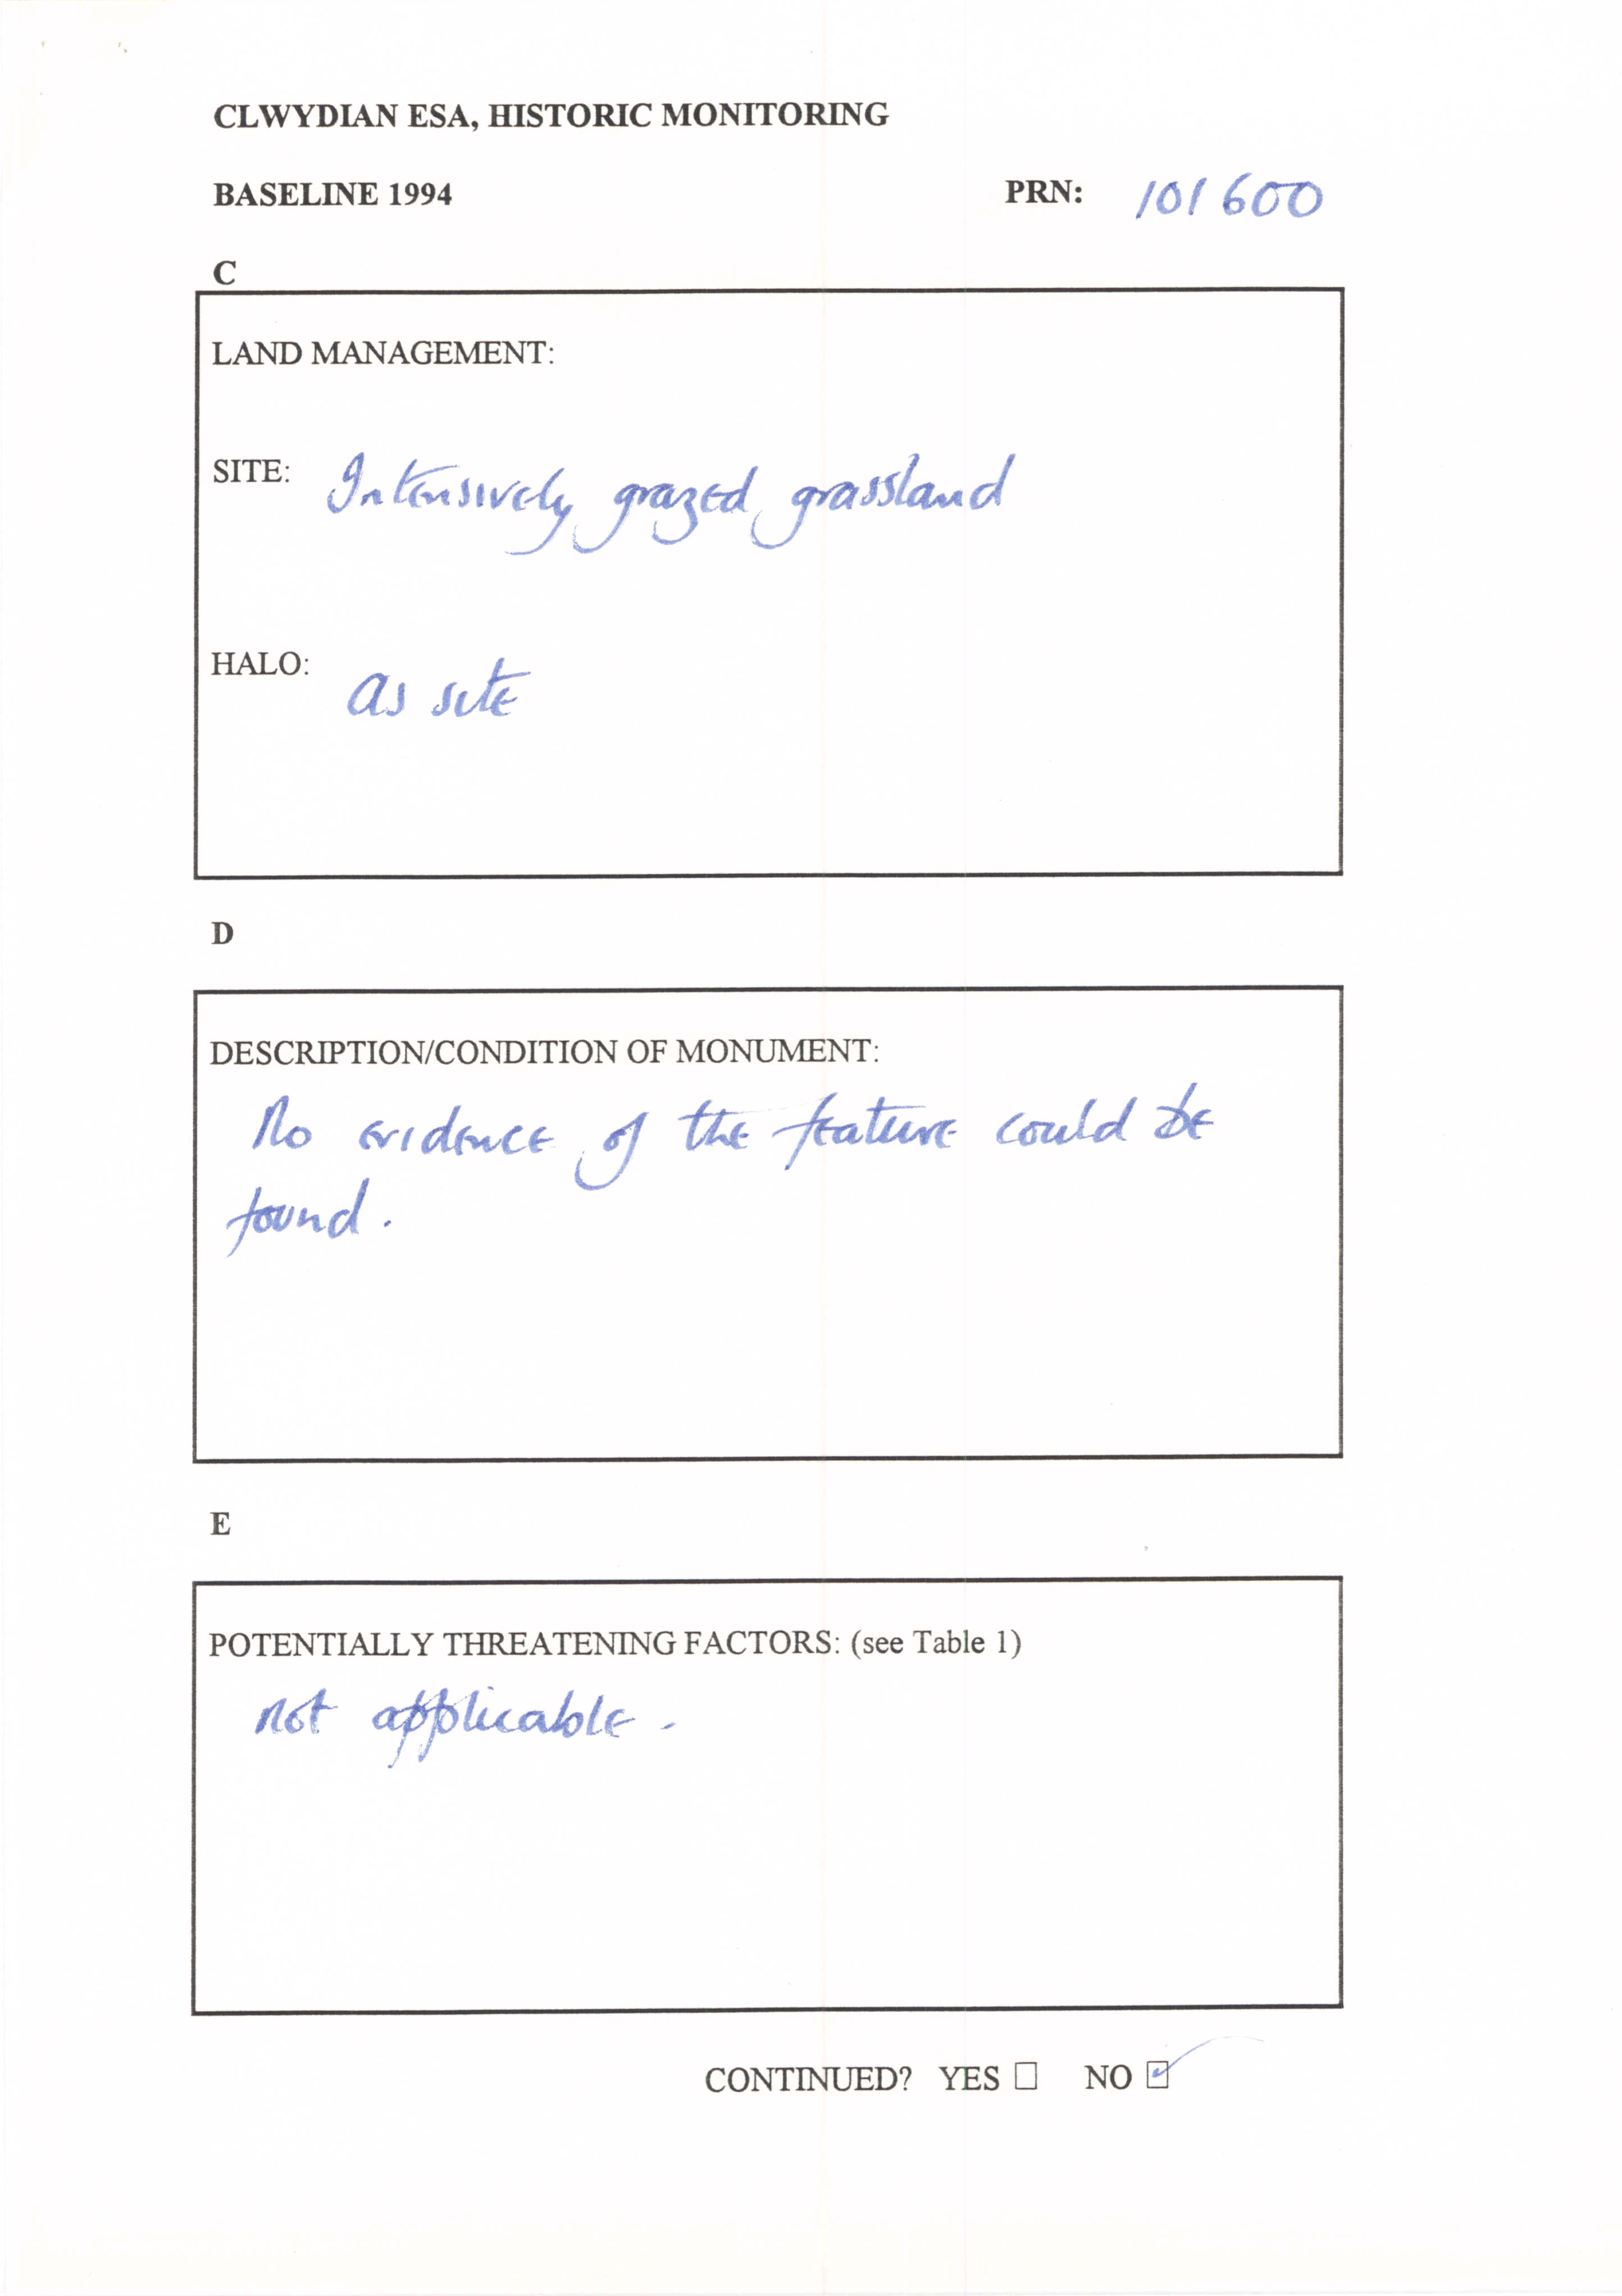 CLWYDIAN ESA, HISTORIC MONITORING
BASELINE 1994 PRN: 101600
C
LAND MANAGEMENT:
SITE: Intensively grazed grassland
HALO: as site
D
DESCRIPTION/CONDITION OF MONUMENT:
No evidence of the feature could be
found.
E
POTENTIALLY THREATENING FACTORS: (see Table 1)
not applicable.
CONTINUED? YES ☐ NO ☑